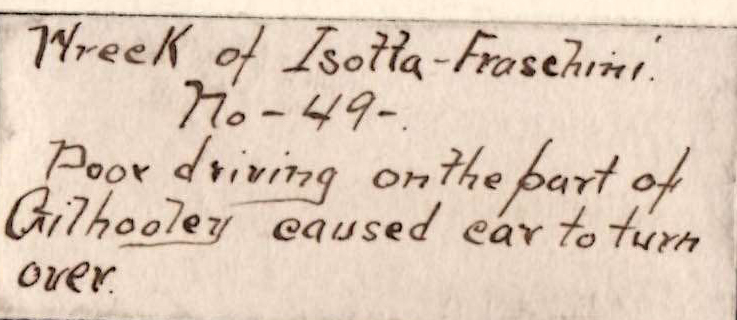 Wreck of Isotta-Fraschini.
No-49-.
Poor driving on the part of
Gilhooley caused car to turn
over.